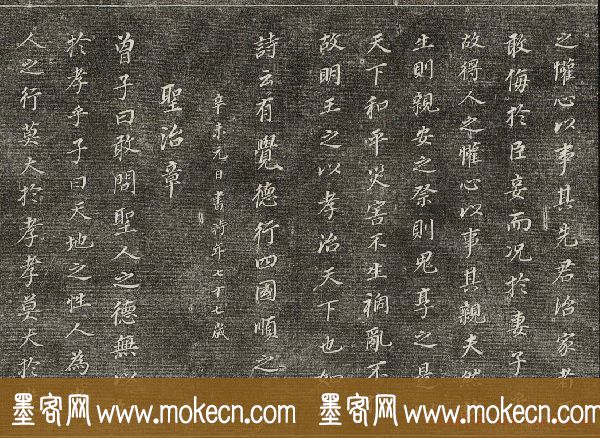 之懽心以事其先君治家者
敢侮於臣妾而况於妻子
故得人之懽心以事其親夫然
生則親安之祭則鬼享之是
天下和平災害不生禍亂不
故明王之以孝治天下也如
詩云有覺德行四國順之
辛未元日書 年七十七歲
聖治章
曾子曰敢問聖人之德無以
於孝乎子曰天地之性人為
人之行莫大於孝孝莫大於
墨客网 www.mokecn.com 墨客网 www.mokecn.com